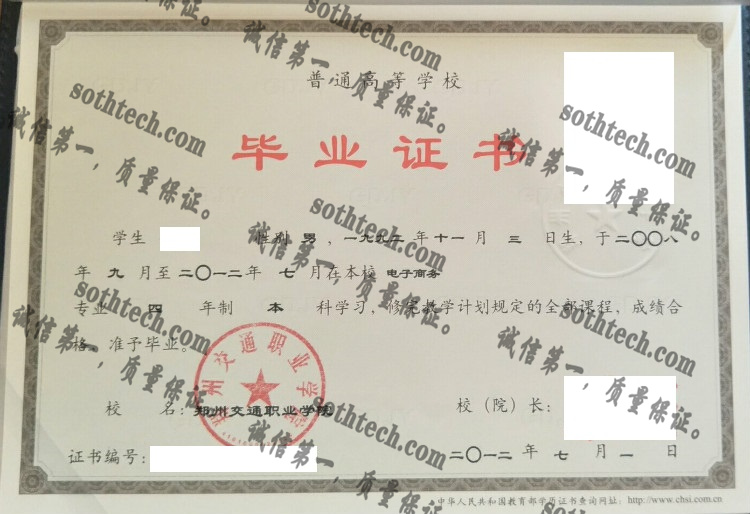 普通高等学校
毕业证书
学生 性别 男 ，一九九二 年 十一 月 三 日生，于二〇〇八
年 九 月至 二〇一二 年 七 月在本校 电子商务
专业 四 年制 本 科学习，修完教学计划规定的全部课程，成绩合
格，准予毕业。
郑州交通职业学院
校 名：郑州交通职业学院 校（院）长：
证书编号： 二〇一二 年 七 月 一 日
中华人民共和国教育部学历证书查询网址：http://www.chsi.com.cn
sothtech.com
诚信第一，质量保证。
sothtech.com
诚信第一，质量保证。
sothtech.com
诚信第一，质量保证。
sothtech.com
诚信第一，质量保证。
sothtech.com
诚信第一，质量保证。
sothtech.com
诚信第一，质量保证。
sothtech.com
诚信第一，质量保证。
sothtech.com
诚信第一，质量保证。